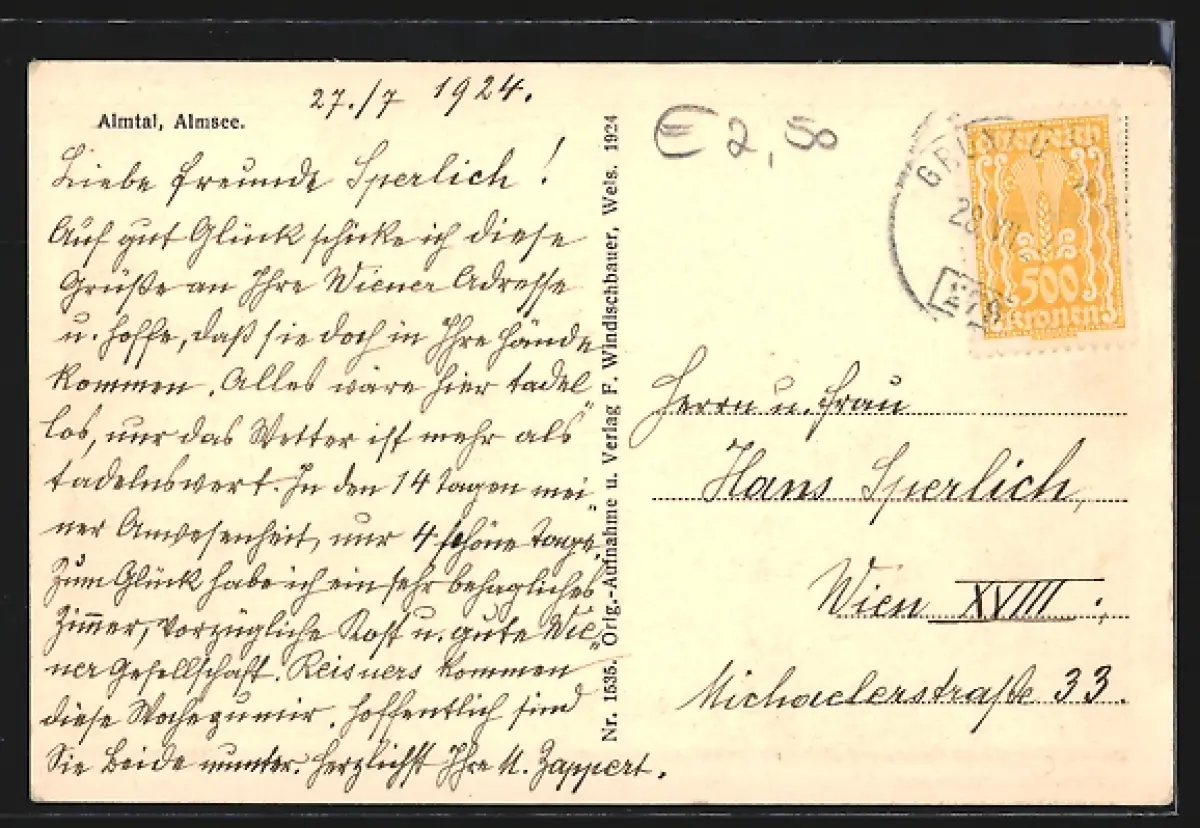 27./7 1924.
Almtal, Almsee.
Liebe Freunde Sperlich!
Auf gut Glück schicke ich diese
Grüße an Ihre Wiener Adresse
u. hoffe, daß sie doch in Ihre Hände
kommen. Alles wäre hier tadel„
los, nur das Wetter ist mehr als
tadelnswert. In den 14 Tagen mei„
ner Anwesenheit, nur 4 schöne Tage.
Zum Glück habe ich ein sehr behagliches
Zimmer, vorzügliche Kost u. gute Wie„
ner Gesellschaft. Reisners kommen
diese Woche zu mir. Hoffentlich sind
Sie Beide munter. Herzlichst Ihre M. Zappert.
Nr. 1535. Orig.-Aufnahme u. Verlag F. Windischbauer, Wels. 1924
€ 2,50
28 VII
500
Kronen
Herrn u. Frau
Hans Sperlich,
Wien XVIII.,
Michaelerstraße 33.